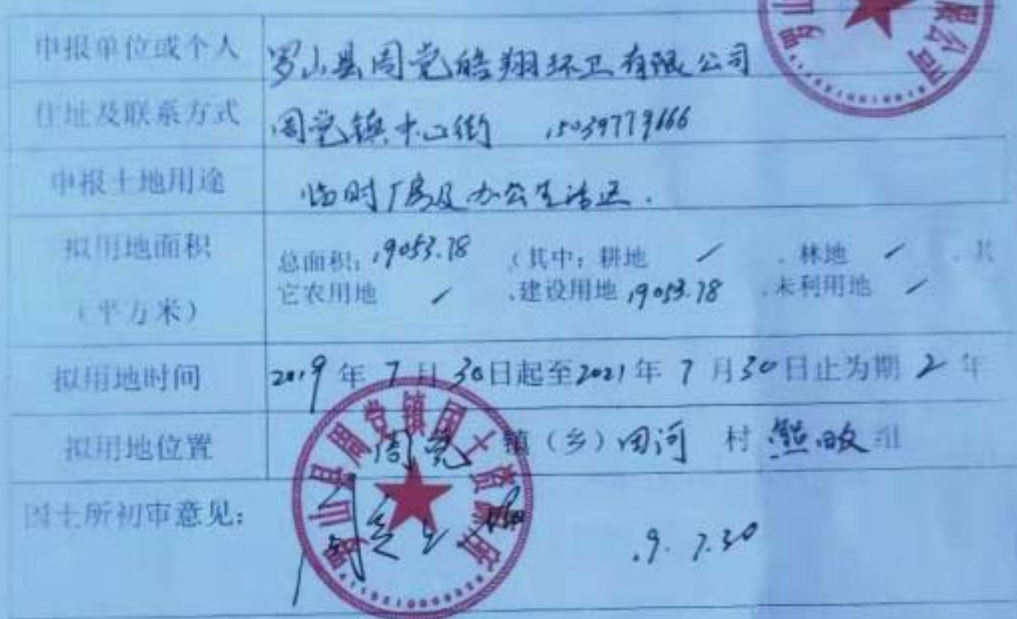 申报单位或个人 罗山县周党皓翔环卫有限公司
住址及联系方式 周党镇中心街 15039779666
申报土地用途 临时厂房及办公生活区.
拟用地面积
(平方米)
总面积:19053.78 (其中:耕地 / .林地 / .其
它农用地 / .建设用地19053.78 .未利用地 /
拟用地时间 2019年7月30日起至2021年7月30日止为期2年
拟用地位置 周党镇(乡)田河 村 熊畈组
国土所初审意见:
.9.7.30
罗山县周党镇国土资源所
限公司